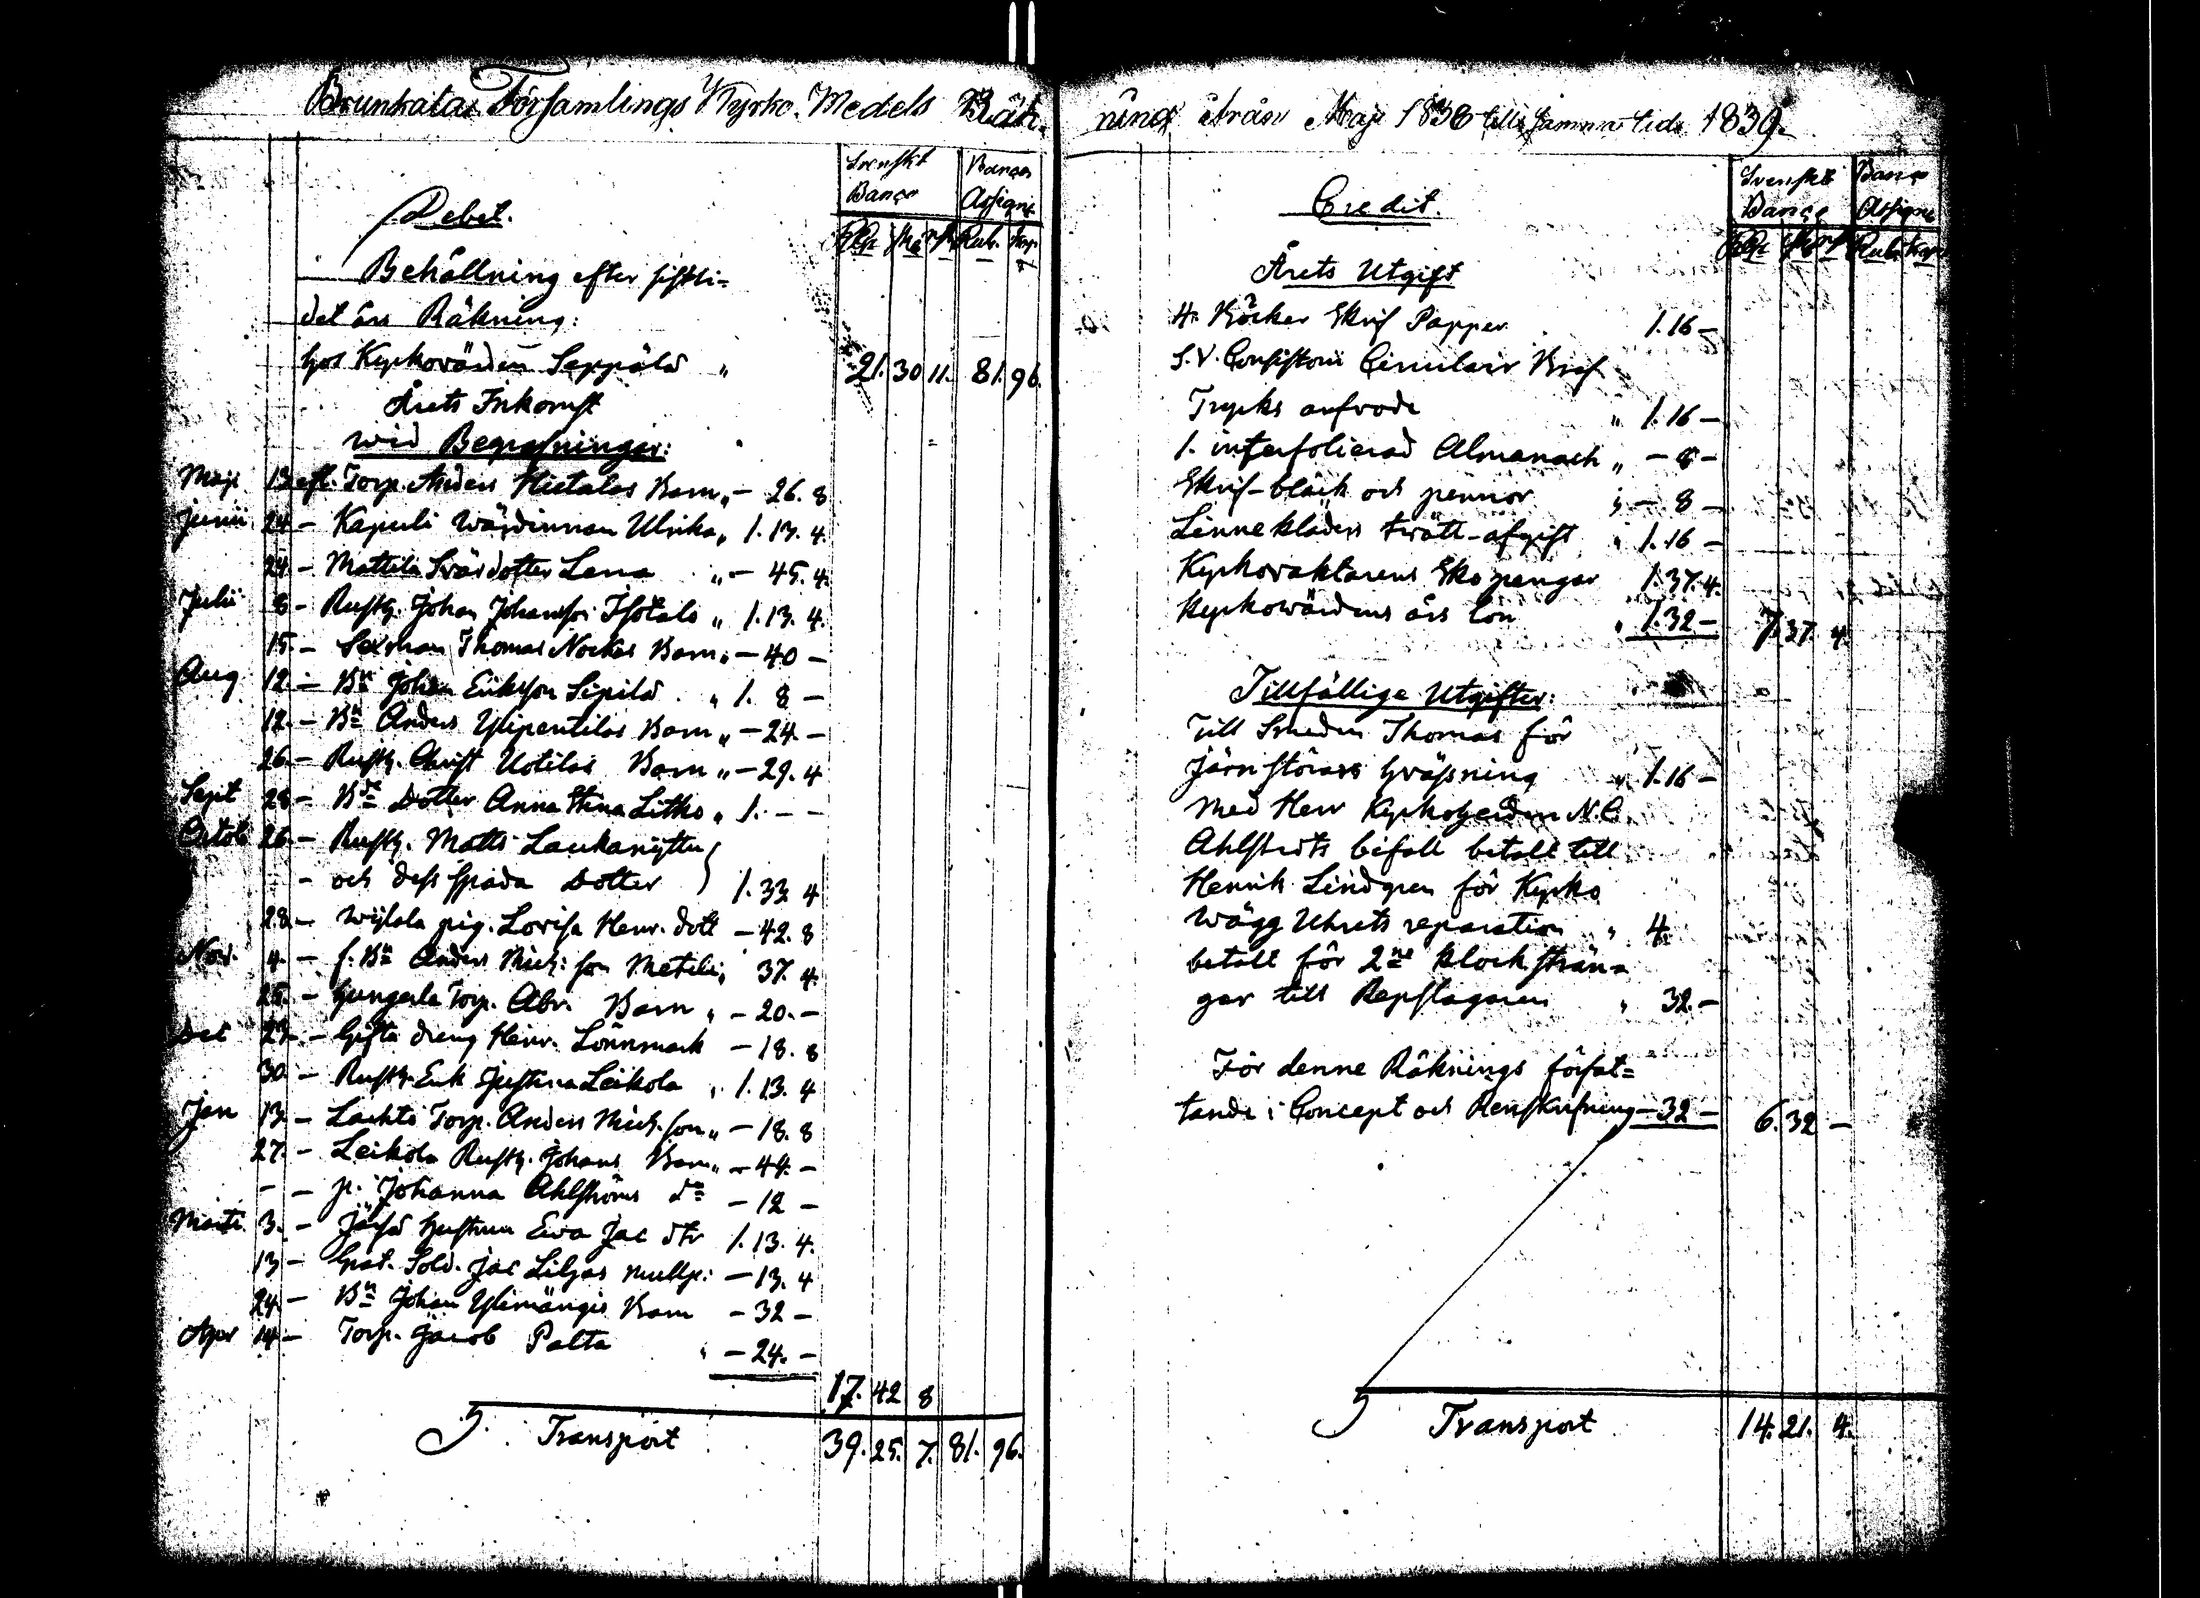 Brunkala Församlings Kyrko-Medels Räk-
Debet.
Svenskt Banco
Banco Assign.
Rdr sk. rst. Rub. kop.
Behållning efter sistli-
det års Räkning:
hos Kyrkovärden Seppälä " 21. 30 11. 81. 96.
Årets Inkomst
wid Begrafningar:
Maji 13 eft. Torp. Anders Hietalas Barn " - 26. 8
Junii 24 - Kapuli Wärdinnan Ulrika " 1. 13. 4.
24. - Mattila Svärdotter Lena " - 45. 4.
Julii 8 - Rusth. Johan Johansson Isotalo " 1. 13. 4.
15. - Sexman Thomas Nockas Barn " - 40 -
Aug 12. - Bn Johan Eriksson Sipilä " 1. 8 -
12. - Bn Anders Ylipentilas Barn " - 24. -
26. - Rusth. Christ Uotilas Barn " - 29. 4
Sept 28 - Bde Dotter Anna Stina Litko " 1. - -
Octob 26. - Rusth. Matts Laukanijttu
- och dess späda Dotter 1. 33 4
28 - pig. Lovisa Henr. dott - 42. 8
Nov. 4. - f. Bn Anders Mich: son Matila " 37. 4.
25. - Torp. Abr. Barn " - 20. -
Dec 23 - Gifta dreng Henr. Lönnmark - 18. 8
30. - Rusth. Enk Justina Leikola " 1. 13. 4
Jan 13 - Lachto Torp. Anders Mich. son " - 18. 8
27. - Leikola Rusth. Johans Barn " - 44. -
- - p. Johanna Ahlströms do - 12 -
Martii 3. - hustrun Ewa Jac dtr 1. 13. 4.
13 - Sold. Jac Liljas - 13. 4
24. - Bn Johan Ylimängis Barn - 32 -
Apr 14 - Torp. Jacob Palta " - 24. -
17. 42 8
Transport 39. 25. 7. 81. 96.
ning ifrån Maji 1838 till samma tid 1839.
Credit.
Svenskt Banco
Banco Assign.
Rdr sk. rst. Rub. kop.
Årets Utgift
4. Böcker Skrif Papper 1. 16 -
S. V. Consistorii Circulair Bref
Trycks arfvode " 1. 16 -
1. interfolierad Almanach " - 8 -
Skrif-bläck och pennor " - 8 -
Linnekläders twätt-afgift " 1. 16 -
Kyrkovaktarens Sko pengar 1. 37. 4.
Kyrkowärdens års lön " 1. 32 - 7. 37. 4.
Tillfällige Utgifter:
Till Smeden Thomas för
järn störars hvässning " 1. 16 -
Med Herr Kyrkoherden N. C.
Ahlstedts bifall betalt till
Henrik Lindgren för Kyrko
Wägg Uhrets reparation " 4.
betalt för 2ne klocksträn-
gar till Repslagaren " 32. -
För denne Räknings förfat-
tande i Concept och Renskrifning - 32 - 6. 32 -
Transport 14. 21. 4.